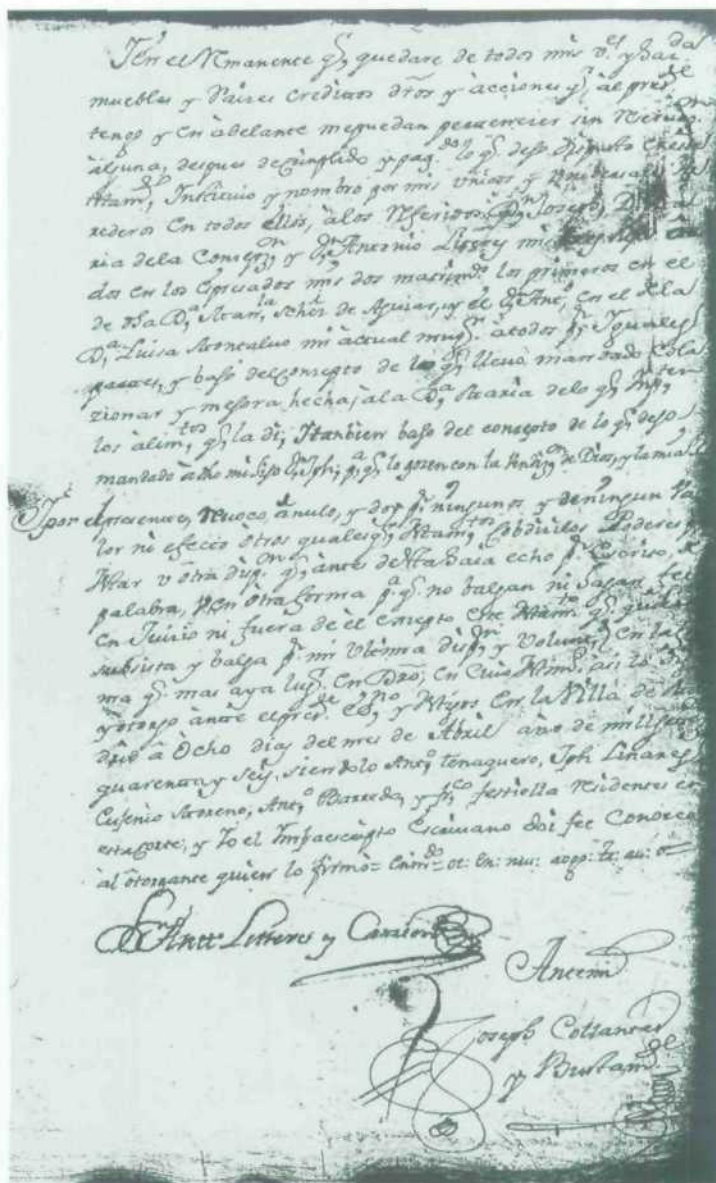 Y en el Remanente q̃ quedare de todos mis v.es y haz.da
muebles y Raizes creditos dr̃os y acciones q̃ al pres.te
tengo y en adelante me puedan pertenecer sin reserva
alguna, despues de cumplido y pag.do lo q̃ dejo dispuesto en este
ttam.to, Instituio y nombro por mis vnicos y vniversales he
rederos en todos ellos, a los referidos D.n Joseph, D.a Ma
ria de la Conzep.n y D.n Antonio Literes y mis hijos
dos en los expresados mis dos matrim.os los primeros en el
de dha D.a Man.la Schez de Aguiar, y el D.n Ant.o en el de la
D.a Luisa Moncalvo mi actual mug.r a todos p.r Yguales
partes, y bajo del consepto de lo q̃ llevo mandado cola
zionar y mejora hecha a la D.a Maria de lo q̃ Ymp.ten
los alim.tos q̃ la di, Ytanbien bajo del consepto de lo q̃ dejo
mandado a dho mi hijo D.n Jph, p.a q̃ lo gozen con la Vendiz.on de Dios, y la mia
Y por el presente, Revoco anulo, y doy p.r ningunos y de ningun va
lor ni efecto otros qualesq.ra ttam.tos Cobdizilos Poderes p.a
ttar v otra disp.on q̃ antes de este haia echo p.r escrito, de
palabra, v en otra forma p.a q̃ no balgan ni hagan fee
en Juizio ni fuera de el excepto este ttam.to q̃ quiero
subsista y balga p.r mi vltima disp.on y Volunt.d en la
ma q̃ mas aya lug.r en Dr̃o, en cuio ttim.o asi lo di
y otorgo ante el pres.te ess.no y ttigos en la Villa de Ma
drid a ocho dias del mes de Abril año de mill sett.os
quarenta y seis, siendolo Ant.o tenaguero, Jph Linares
Eusenio Moreno, Ant.o Barreda, y fr.co festiolla residentes en
esta corte, y Yo el Ynfraescripto Escrivano doi fee conozco
al otorgante quien lo firmò=
Ant.o Litteres y Carrion
Antemi
Joseph Collantes
y Bustam.te